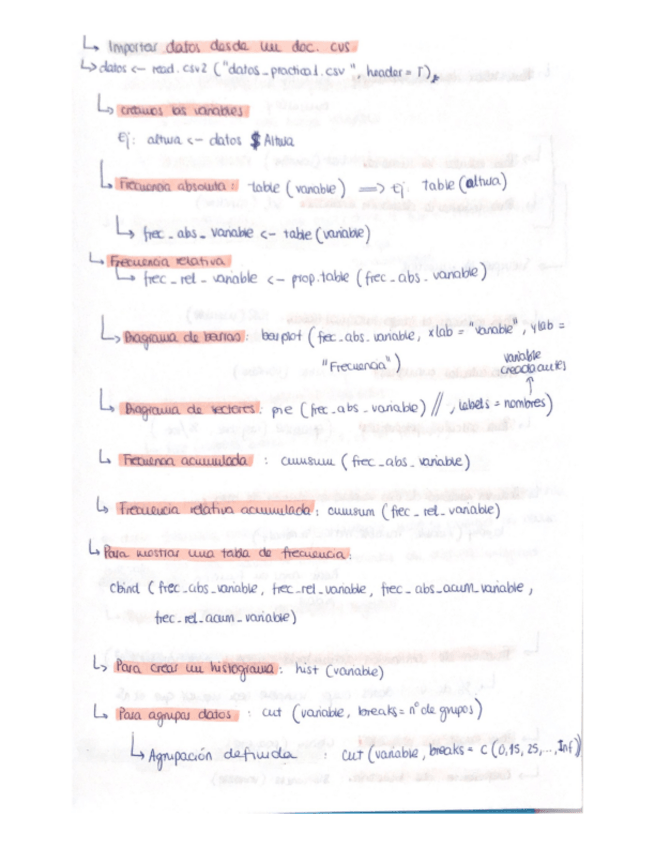 ↳ Importar datos desde un doc. cvs
↳ datos <- read.csv2 ("datos_practica1.csv", header = T),
↳ creamos las variables
Ej: altura <- datos $ Altura
↳ Frecuencia absoluta: table (variable) => Ej: table (altura)
↳ frec_abs_variable <- table (variable)
↳ Frecuencia relativa
↳ frec_rel_variable <- prop.table (frec_abs_variable)
↳ Diagrama de barras: barplot (frec_abs_variable, xlab = "variable", ylab =
"Frecuencia")
variable
creada antes
↑
↳ Diagrama de sectores: pie (frec_abs_variable) // , labels = nombres)
↳ Frecuencia acumulada : cumsum (frec_abs_variable)
↳ Frecuencia relativa acumulada: cumsum (frec_rel_variable)
↳ Para mostrar una tabla de frecuencia:
cbind (frec_abs_variable, frec_rel_variable, frec_abs_acum_variable,
frec_rel_acum_variable)
↳ Para crear un histograma: hist (variable)
↳ Para agrupar datos : cut (variable, breaks = nº de grupos)
↳ Agrupación definida : cut (variable, breaks = c (0,15, 25,..., Inf)